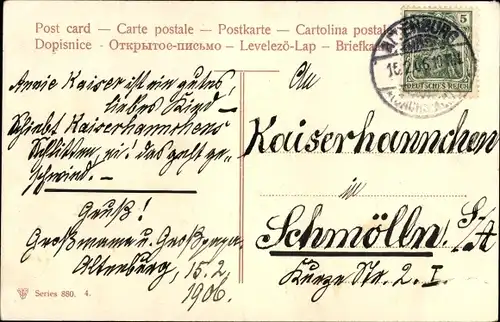 Post card - Carte postale - Postkarte - Cartolina postale
Dopisnice - Открытое-письмо - Levelező-Lap - Briefkaart
5
DEUTSCHES REICH
ALTENBURG
15.2.06
Annie Kaiser ist ein gutes,
liebes Kind –
Schiebt Kaiserhannchens
Schlitten, ei! das geht ge-
schwind. –
Gruß!
Großmama u. Großpapa.
Altenburg, 15.2.
1906.
An
Kaiserhannchen
in
Schmölln. S/A
Kurze Str. 2. I.
Series 880. 4.